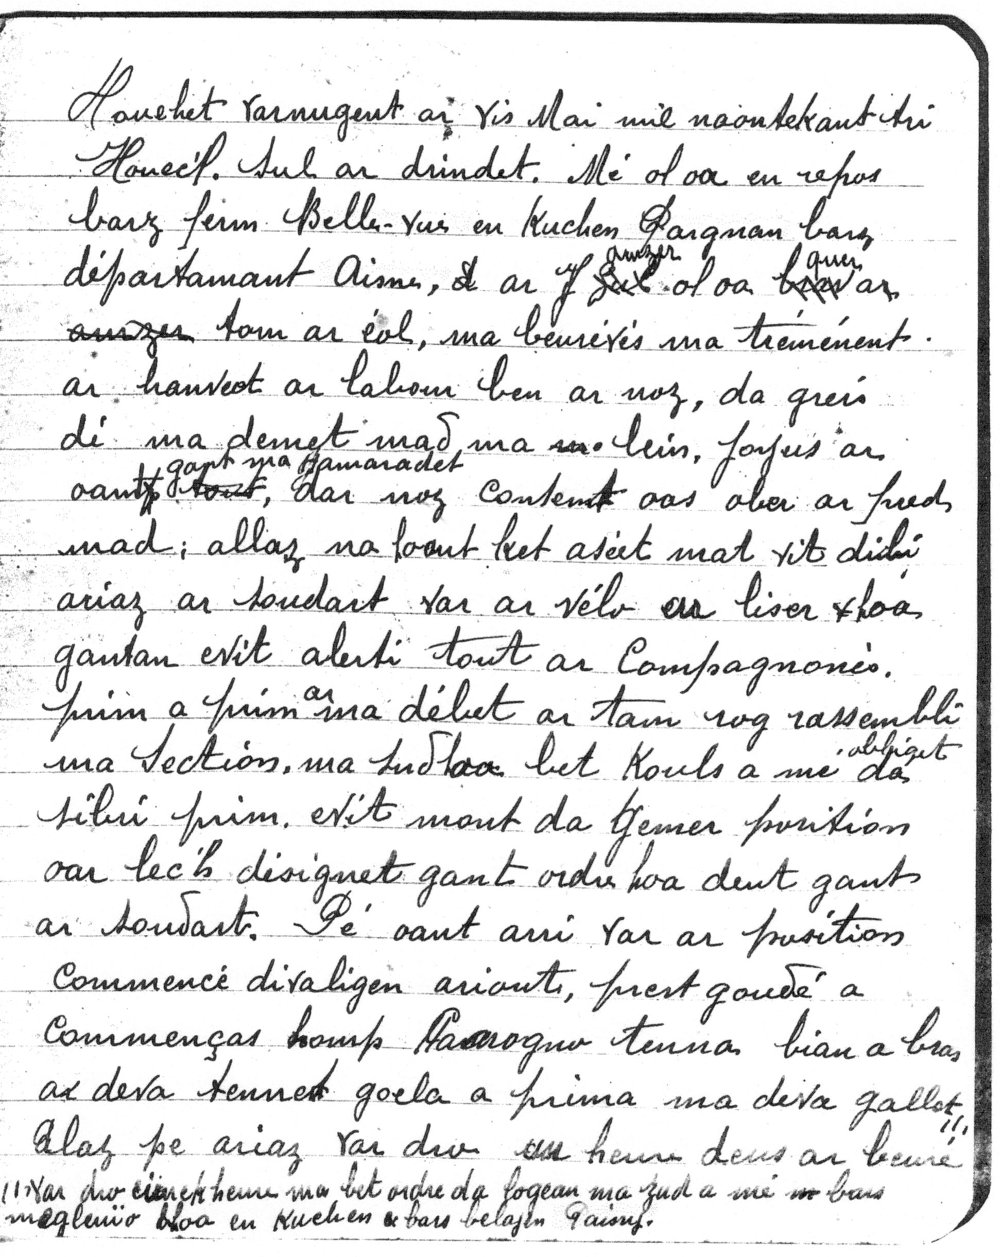 Houehet varnugent ar vis Mai mil naontekant tri
Houec'h. Sul ar drindet. Mé oloa en repos
barz ferm Belle-vue en Kuchen Pargnan barz
départamant Aisne, & ar amzer oloa quer ar
amzer tom ar éol, ma beurévés ma tréménent.
ar hanveot ar labour ben ar noz, da greis
dé ma demet mad ma lein, joyus ar
oant gant ma Kamaradet, dar noz contemt oas ober ar pred
mad; allaz na hoant ket aséet mat vit dibi
ariaz ar soudart var ar vélo eu liser hoa
gantan evit alerti tout ar Compagnonés.
prim a prim ar ma débet ar tam rog rassembli
ma Section. ma sud hoa bet Kouls a mé obliget da
sibri prim. evit mont da guemer position
oar lec'h désignet gant ordre hoa deut gant
ar soudart. Pé oant arri var ar position
Commencé divaligen arionts, prest goudé a
Commenças homp Kanrogno tenna bian a bras
ar deva tennet goela a prima ma deva gallet !!!
Alaz pe ariaz var dro un heure deus ar beuré
!!! var dro cinek heure ma bet ordre da logean ma zud a mé bars
megleuïo hoa en Kuchen bars belajen Paisny.